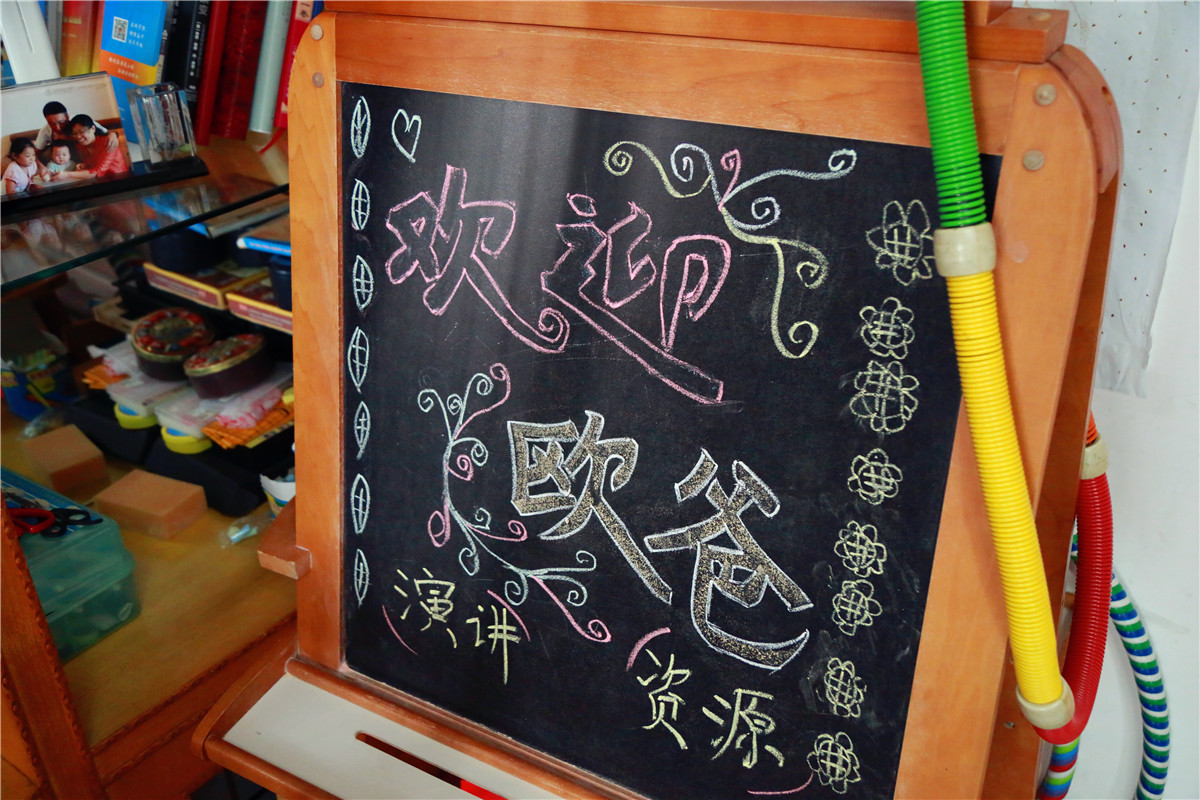 欢迎
欧爸
(演讲)
(资源)